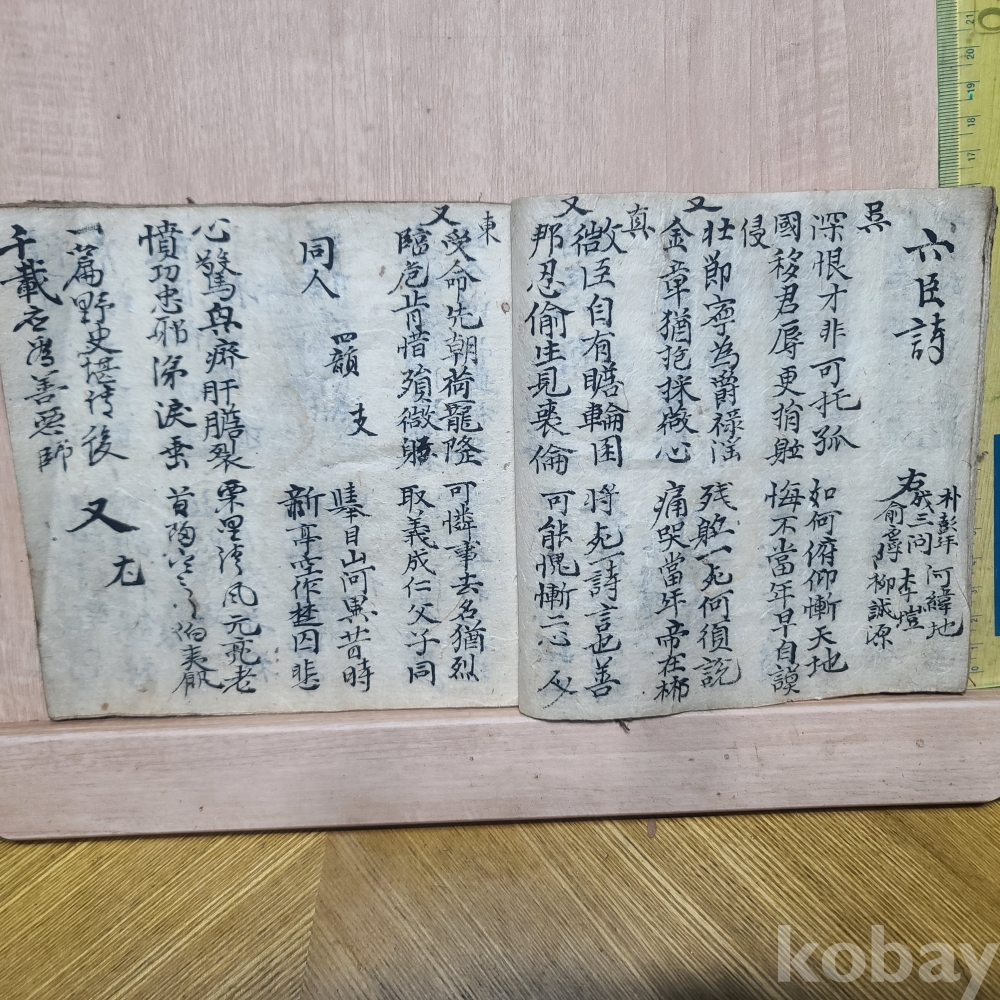 六臣詩
朴彭年 河緯地
成三問 李塏
右 俞應孚 柳誠源
吳
深恨才非可托孤 如何俯仰慚天地
國移君辱更捐軀 悔不當年早自謨
侵
又
壯節寧為爵祿淫 殘軀一死何須說
金章猶抱採薇心 痛哭當年帝在郴
真
微臣自有膽輪囷 將死一詩言也善
又
邦忍偷生見裘倫 可能愧慚二心
東
又
受命先朝荷寵隆 可憐事去名猶烈
臨危肯惜殞微軀 取義成仁父子同
支
四韻
同人
擧目山河異昔時
新亭空作楚囚悲
心驚與 肝膽裂 栗里淸風元亮老
憤 忠邪涕淚垂 首陽 伯夷飢
一篇野史堪傳後
千載 善惡師
又
尤
kobay